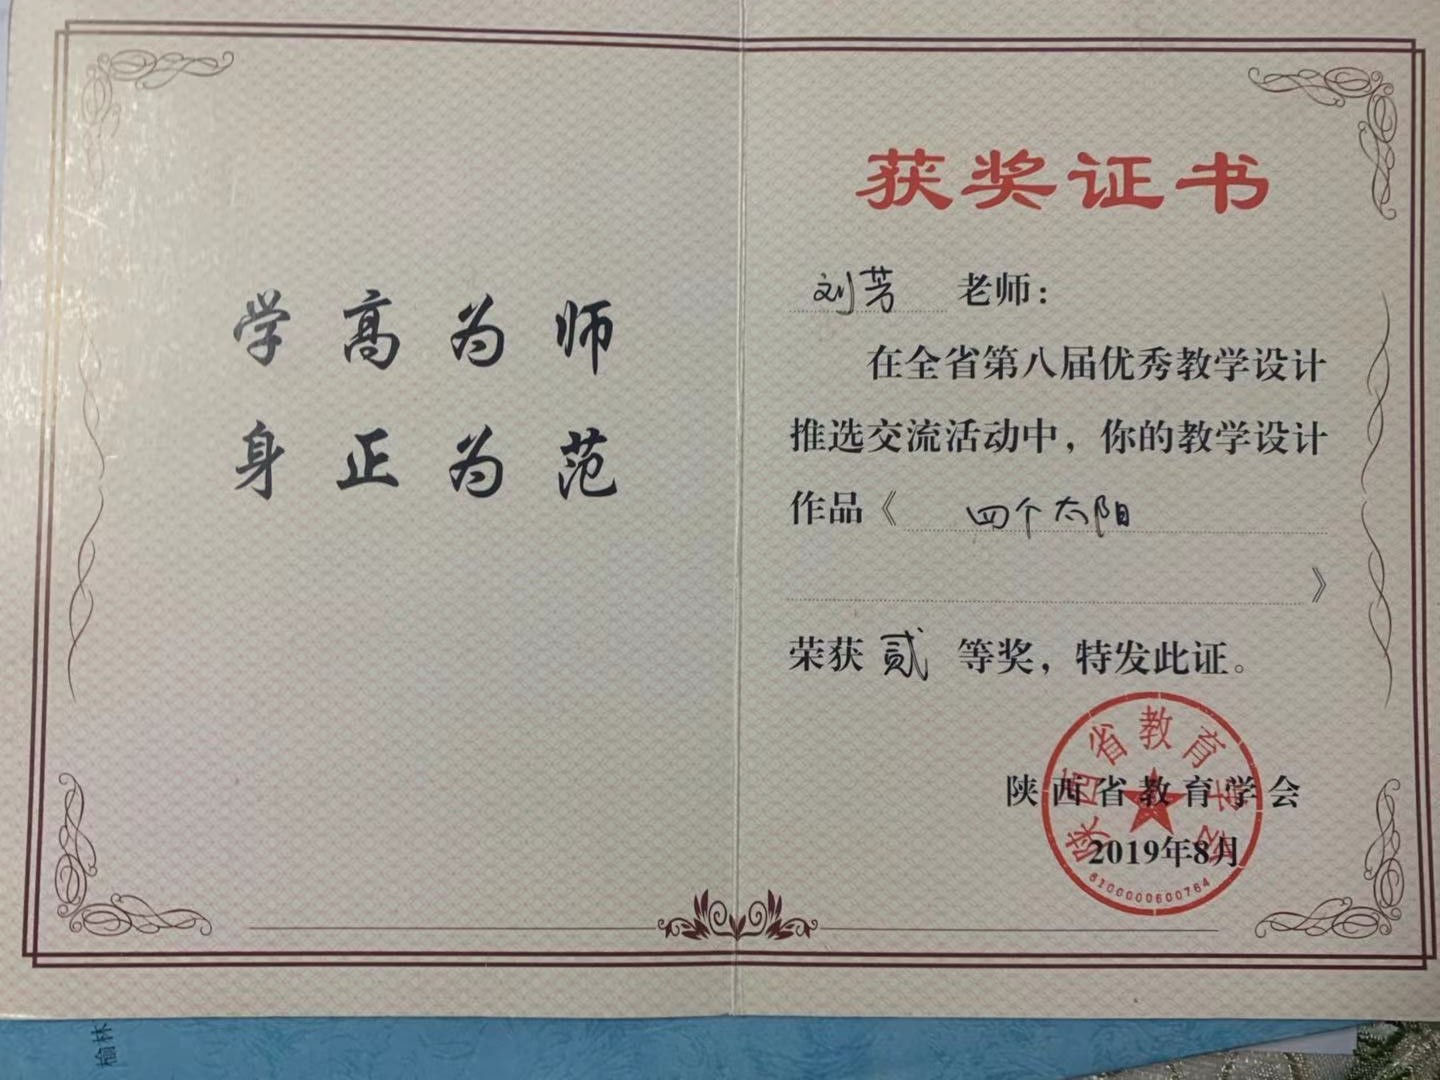 学高为师
身正为范
获奖证书
刘芳 老师：
在全省第八届优秀教学设计
推选交流活动中，你的教学设计
作品《 四个太阳
》
荣获 贰 等奖，特发此证。
陕西省教育学会
2019年8月
陕西省教育学会
6100000600764
榆林